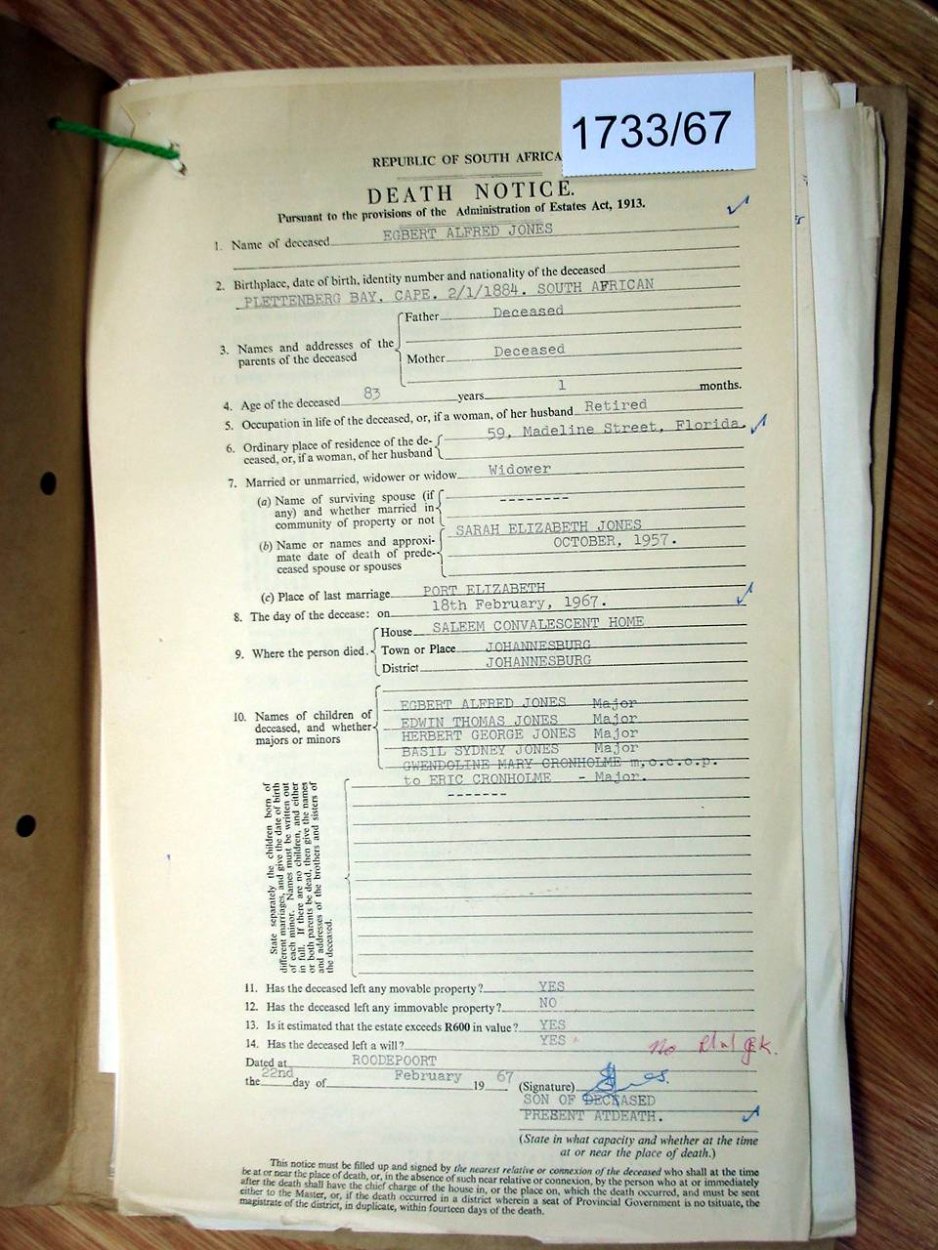 1733/67
REPUBLIC OF SOUTH AFRICA
DEATH NOTICE.
Pursuant to the provisions of the Administration of Estates Act, 1913.
1. Name of deceased EGBERT ALFRED JONES
2. Birthplace, date of birth, identity number and nationality of the deceased
PLETTENBERG BAY. CAPE. 2/1/1884. SOUTH AFRICAN
3. Names and addresses of the parents of the deceased
Father Deceased
Mother Deceased
4. Age of the deceased 83 years 1 months.
5. Occupation in life of the deceased, or, if a woman, of her husband Retired
6. Ordinary place of residence of the de-
ceased, or, if a woman, of her husband
59, Madeline Street, Florida.
7. Married or unmarried, widower or widow Widower
(a) Name of surviving spouse (if
any) and whether married in
community of property or not
--------
(b) Name or names and approxi-
mate date of death of prede-
ceased spouse or spouses
SARAH ELIZABETH JONES
OCTOBER, 1957.
(c) Place of last marriage PORT ELIZABETH
8. The day of the decease: on 18th February, 1967.
9. Where the person died.
House SALEEM CONVALESCENT HOME
Town or Place JOHANNESBURG
District JOHANNESBURG
10. Names of children of
deceased, and whether
majors or minors
EGBERT ALFRED JONES Major
EDWIN THOMAS JONES Major
HERBERT GEORGE JONES Major
BASIL SYDNEY JONES Major
GWENDOLINE MARY CRONHOLME m.o.c.o.p.
to ERIC CRONHOLME - Major.
-------
State separately the children born of
different marriages, and give the date of birth
of each minor. Names must be written out
in full. If there are no children, and either
or both parents be dead, then give the names
and addresses of the brothers and sisters of
the deceased.
11. Has the deceased left any movable property? YES
12. Has the deceased left any immovable property? NO
13. Is it estimated that the estate exceeds R600 in value? YES
14. Has the deceased left a will? YES
No
Dated at ROODEPOORT
the 22nd day of February 19 67
(Signature)
SON OF DECEASED
PRESENT ATDEATH.
(State in what capacity and whether at the time
at or near the place of death.)
This notice must be filled up and signed by the nearest relative or connexion of the deceased who shall at the time
be at or near the place of death, or, in the absence of such near relative or connexion, by the person who at or immediately
after the death shall have the chief charge of the house in, or the place on, which the death occurred, and must be sent
either to the Master, or, if the death occurred in a district wherein a seat of Provincial Government is no tsituate, the
magistrate of the district, in duplicate, within fourteen days of the death.